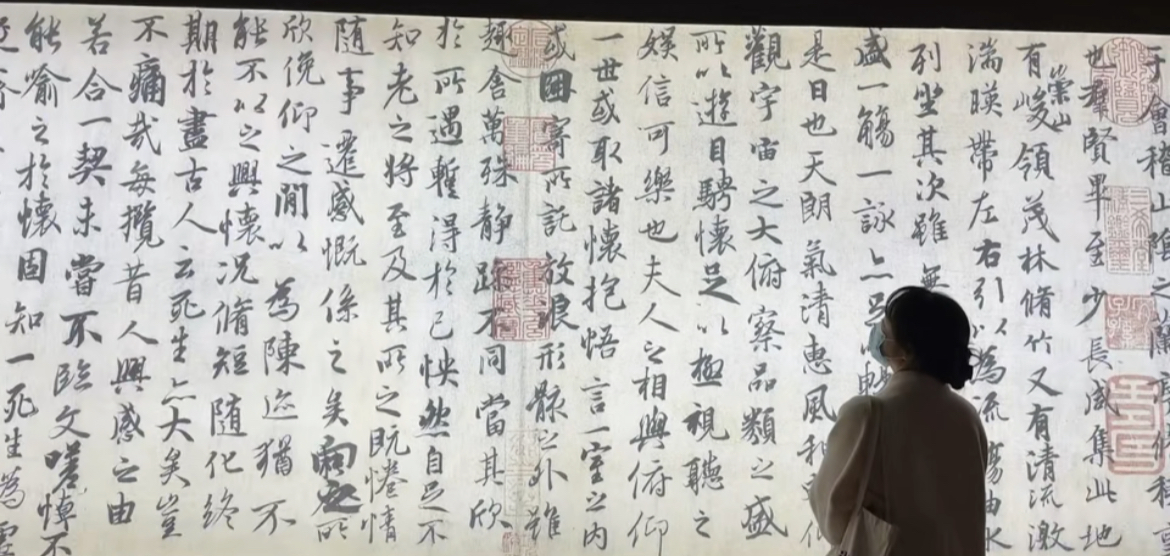 于會稽山陰之蘭亭脩稧事
也羣賢畢至少長咸集此地
有崇山峻領茂林脩竹又有清流激
湍暎帶左右引以為流觴曲水
列坐其次雖無
盛一觴一詠亦足以暢
是日也天朗氣清惠風和
觀宇宙之大俯察品類之盛
所以遊目騁懷足以極視聽之
娛信可樂也夫人之相與俯仰
一世或取諸懷抱悟言一室之內
或因寄所託放浪形骸之外雖
趣舍萬殊靜躁不同當其欣
於所遇暫得於己怏然自足不
知老之將至及其所之既惓情
隨事遷感慨係之矣向之所
欣俛仰之閒以為陳迹猶不
能不以之興懷況脩短隨化終
期於盡古人云死生亦大矣豈
不痛哉每攬昔人興感之由
若合一契未嘗不臨文嗟悼不
能喻之於懷固知一死生為